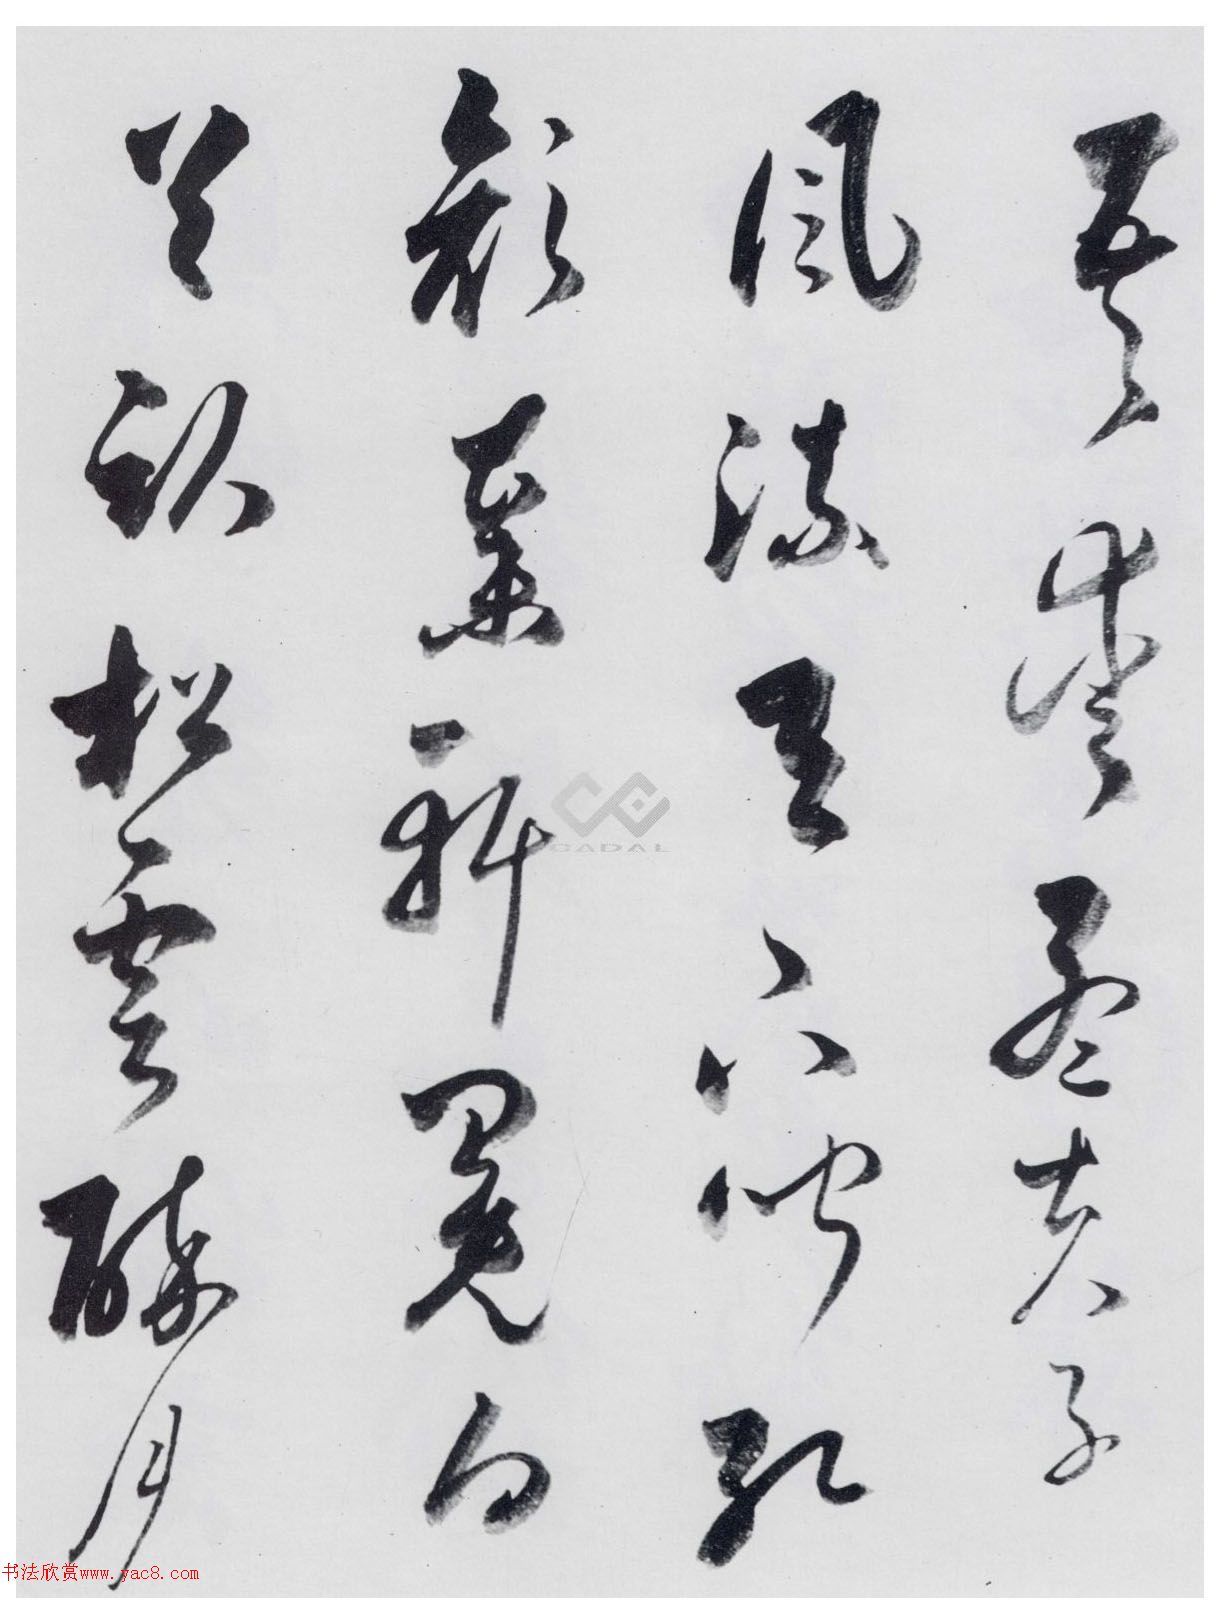 吾愛孟夫子
風流天下聞紅
顏棄軒冕白
首臥松雲醉月
CADAL
书法欣赏www.yac8.com